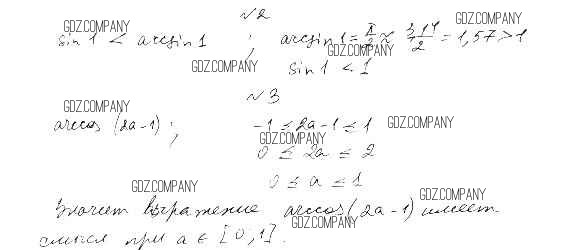 №2
sin 1 < arcsin 1 ; arcsin 1 = π/2 ≈ 3,14/2 = 1,57 > 1
sin 1 < 1
№3
arccos (2a-1) ; -1 ≤ 2a-1 ≤ 1
0 ≤ 2a ≤ 2
0 ≤ a ≤ 1
Значит выражение arccos(2a-1) имеет
смысл при a ∈ [0,1].
GDZ.COMPANY
GDZ.COMPANY
GDZ.COMPANY
GDZ.COMPANY
GDZ.COMPANY
GDZ.COMPANY
GDZ.COMPANY
GDZ.COMPANY
GDZ.COMPANY
GDZ.COMPANY